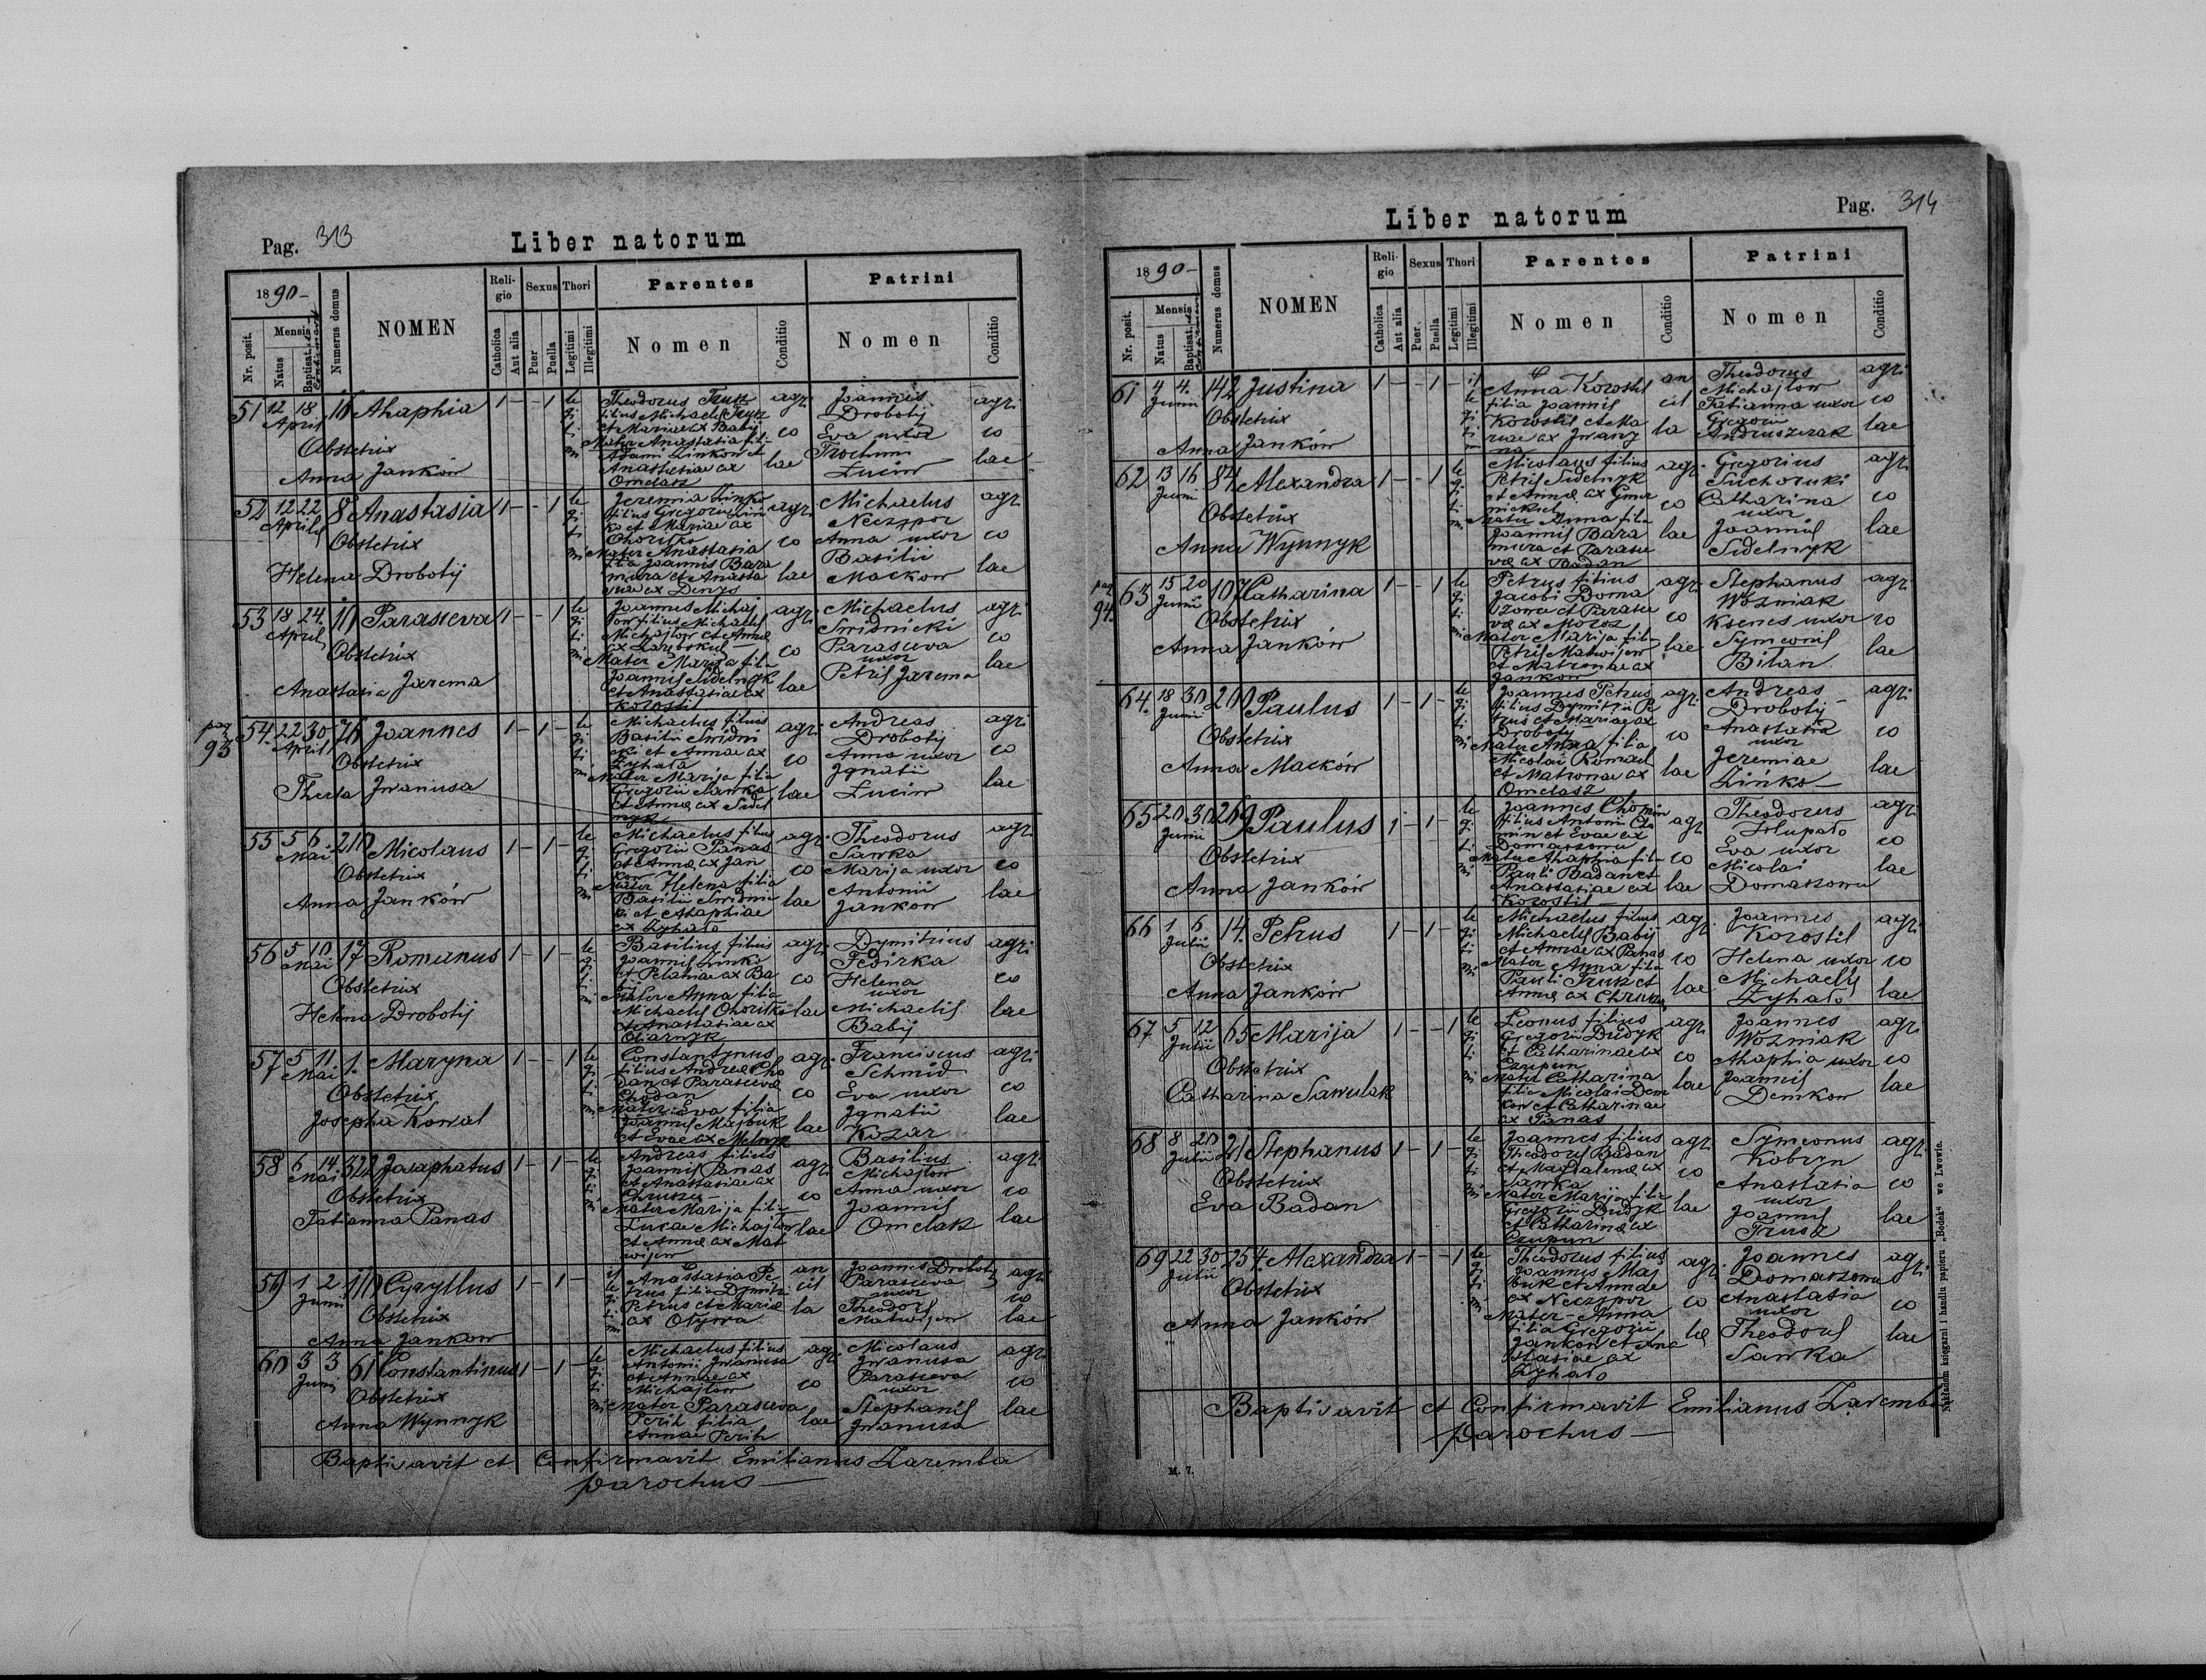 Pag. 313
Liber natorum
1890 -
Nr. posit.
Mensis
Natus
Baptisat. et confirmat.
Numerus domus
NOMEN
Religio
Catholica
Aut alia
Sexus
Puer
Puella
Thori
Legitimi
Illegitimi
Parentes
Nomen
Conditio
Patrini
Nomen
Conditio
51 12 18 Aprilis 16 Ahaphia 1 - - 1 legitimi
Obstetrix
Anna Janków
Theodorus Trusz
filius Michaelis Trusz
et Mariae ex Babij
Mater Anastasia fili-
Adami Zinkow et
Anastasiae ex
Omelasz
agricolae
Joannes
Drobotij
Eva uxor
Trochimi
Luciw
agricolae
52 12 22 Aprilis 8 Anastasia 1 - - 1 legitimi
Obstetrix
Helena Drobotij
Jeremia Zinko
filius Gregorii Zin
ko et Mariae ex
Choritko
Mater Anastasia
filia Joannis Bara
mura et Anasta
siae ex Denys
agricolae
Michaelus
Neczypor
Anna uxor
Basilii
Mackow
agricolae
53 18 24 Aprilis 101 Parasceva 1 - - 1 legitimi
Obstetrix
Anastasia Jarema
Joannes Michaj
low filius Michaelis
Michajlow et Annae
ex
Mater Marija fil-
Joannis Sidelnyk
et Anastasiae ex
Korostil
agricolae
Michaelus
Swidnicki
Parasceva
uxor
Petris Jarema
agricolae
pag 93
54 22 30 Aprilis 76 Joannes 1 - 1 - legitimi
Obstetrix
Theresa Iwanusa
Michaelus filius
Basilii Swidni
cki et Annae ex
Zyhala
Mater Marija filia
Gregorii Sawka
et Annae ex Sidel
nyk
agricolae
Andreas
Drobotij
Anna uxor
Ignatii
Luciw
agricolae
55 5 6 Mai 210 Nicolaus 1 - 1 - legitimi
Obstetrix
Anna Janków
Michaelus filius
Gregorii Panas
et Annae ex Jan
kow
Mater Helena filia
Basilii Swidnic
ki et Ahaphiae
ex Zyhalo
agricolae
Theodorus
Sawka
Marija uxor
Antonii
Jankow
agricolae
56 5 10 Mai 17 Romanus 1 - 1 - legitimi
Obstetrix
Helena Drobotij
Basilius filius
Joannis Zinko
et Pelahiae ex Ba
bij
Mater Anna filia
Michaelis Choritko
et Anastasiae ex
Oliarnyk
agricolae
Dymitrius
Fedirka
Helena
uxor
Michaelis
Babij
agricolae
57 5 11 Mai 1. Maryna 1 - - 1 legitimi
Obstetrix
Josepha Kowal
Constantynus
filius Andreae Cho
dan et Parascevae
Chodan
Mater Eva filia
Joannis Majbuk
et Evae ex Melnyk
agricolae
Franciscus
Schmid
Eva uxor
Ignatii
Kozar
agricolae
58 6 14 Mai 322 Josaphatus 1 - 1 - legitimi
Obstetrix
Tatianna Panas
Andreas filius
Joannis Panas
et Anastasiae ex
Chruszcz -
Mater Marija fili-
Lucae Michajlow
et Annae ex Mat
wijew
agricolae
Basilius
Michajlow
Anna uxor
Joannis
Omelak
agricolae
59 1 2 Junii 110 Cyryllus 1 - 1 - illegitimi
Obstetrix
Anna Jankow
Anastasia Pe
trus filia Dymitri
Petrus et Mariae
ex Olijwa
ancilla
Joannes Drobotij
Parasceva
uxor
Theodori
Matwijew
agricolae
60 3 3 Junii 61 Constantinus 1 - 1 - legitimi
Obstetrix
Anna Wynnyk
Michaelus filius
Antonii Iwanusa
et Annae ex
Michajlow
Mater Parasceva
Perih filia
Annae Perih
agricolae
Nicolaus
Iwanusa
Parasceva
uxor
Stephanis
Iwanusa
agricolae
Baptisavit et Confirmavit Emilianus Zaremba
parochus -
Pag. 314
Liber natorum
1890 -
Nr. posit.
Mensis
Natus
Baptisat. et confirmat.
Numerus domus
NOMEN
Religio
Catholica
Aut alia
Sexus
Puer
Puella
Thori
Legitimi
Illegitimi
Parentes
Nomen
Conditio
Patrini
Nomen
Conditio
61 4 4. Junii 142 Justina 1 - - 1 - illegitimi
Obstetrix
Anna Janków
Anna Korostil
filia Joannis
Korostil et Ma
riae ex Iwany
na
ancilla
Theodorus
Michajlow
Tatianna uxor
Gregorii
Andruszczak
agricolae
62 13 16 Junii 84 Alexandra 1 - - 1 legitimi
Obstetrix
Anna Wynnyk
Nicolaus filius
Petris Sidelnyk
et Annae ex
Mater Anna filia
Joannis Bara
mura et Parasce
vae ex Badan
agricolae
Gregorius
Suchoruki
Catharina
uxor
Joannis
Sidelnyk
agricolae
pag 94.
63 15 20 Junii 107 Catharina 1 - - 1 legitimi
Obstetrix
Anna Janków
Petrus filius
Jacobi Doma
szowu et Parasce
vae ex Moroz
Mater Marija fil-
Petris Matwijew
et Matronae ex
Jankow
agricolae
Stephanus
Wozniak
Ksenes uxor
Symeonis
Bilan
agricolae
64 18 30 Junii 200 Paulus 1 - 1 - legitimi
Obstetrix
Anna Macków
Joannes Petrus
filius Dymitrii Pe
trus et Mariae ex
Drobotij
Mater Anna filia
Nicolai Romach
et Matronae ex
Omelasz
agricolae
Andreas -
Drobotij
Anastasia
uxor
Jeremiae
Zińko -
agricolae
65 20 30 Junii 269 Paulus 1 - 1 - legitimi
Obstetrix
Anna Janków
Joannes Chomin
filius Antonii Cho
min et Evae ex
Domaszowu
Mater Ahaphia fil-
Pauli Badan et
Anastasiae ex
Korostil -
agricolae
Theodorus
Hlupalo
Eva uxor
Nicolai
Domaszowu
agricolae
66 1 6 Julii 14. Petrus 1 - 1 - legitimi
Obstetrix
Anna Janków
Michaelus filius
Michaelis Babij
et Annae ex Panas
Mater Anna filia
Pauli Trusz et
Annae ex Chruszcz
agricolae
Joannes
Korostil
Helena uxor
Michaelis
Zyhalo
agricolae
67 5 12 Julii 65 Marija 1 - - 1 legitimi
Obstetrix
Catharina Sawulak
Leonus filius
Gregorii Dudyk
et Catharinae ex
Czupun
Mater Catharina
filia Nicolai Dem
kow et Catharinae
ex Panas
agricolae
Joannes
Wozniak
Ahaphia uxor
Joannis
Demkow
agricolae
68 8 20 Julii 21 Stephanus 1 - 1 - legitimi
Obstetrix
Eva Badan
Joannes filius
Theodori Badan
et Magdalenae ex
Sawka
Mater Marija filia
Gregorii Dudyk
et Catharinae ex
Czupun
agricolae
Symeonus
Kobryn
Anastasia
uxor
Joannis
Trusz
agricolae
69 22 30 Julii 254. Alexandra 1 - - 1 legitimi
Obstetrix
Anna Janków
Theodorus filius
Joannis Maj
buk et Annae
ex Neczypor
Mater Anna
filia Gregorii
Jankow et Ana
stasiae ex
Zyhalo
agricolae
Joannes
Domaszowu
Anastasia
uxor
Theodori
Sawka
agricolae
Baptisavit et Confirmavit Emilianus Zaremba
parochus -
M. 7.
Nakładem księgarni i handlu papieru „Bodek" we Lwowie.